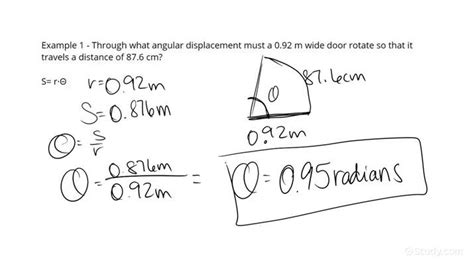 Example 1 - Through what angular displacement must a 0.92 m wide door rotate so that it
travels a distance of 87.6 cm?
S= r·Θ
r=0.92m
S=0.876m
Θ=s/r
Θ=0.876m/0.92m = Θ=0.95radians
87.6cm
Θ
0.92m
©Study.com